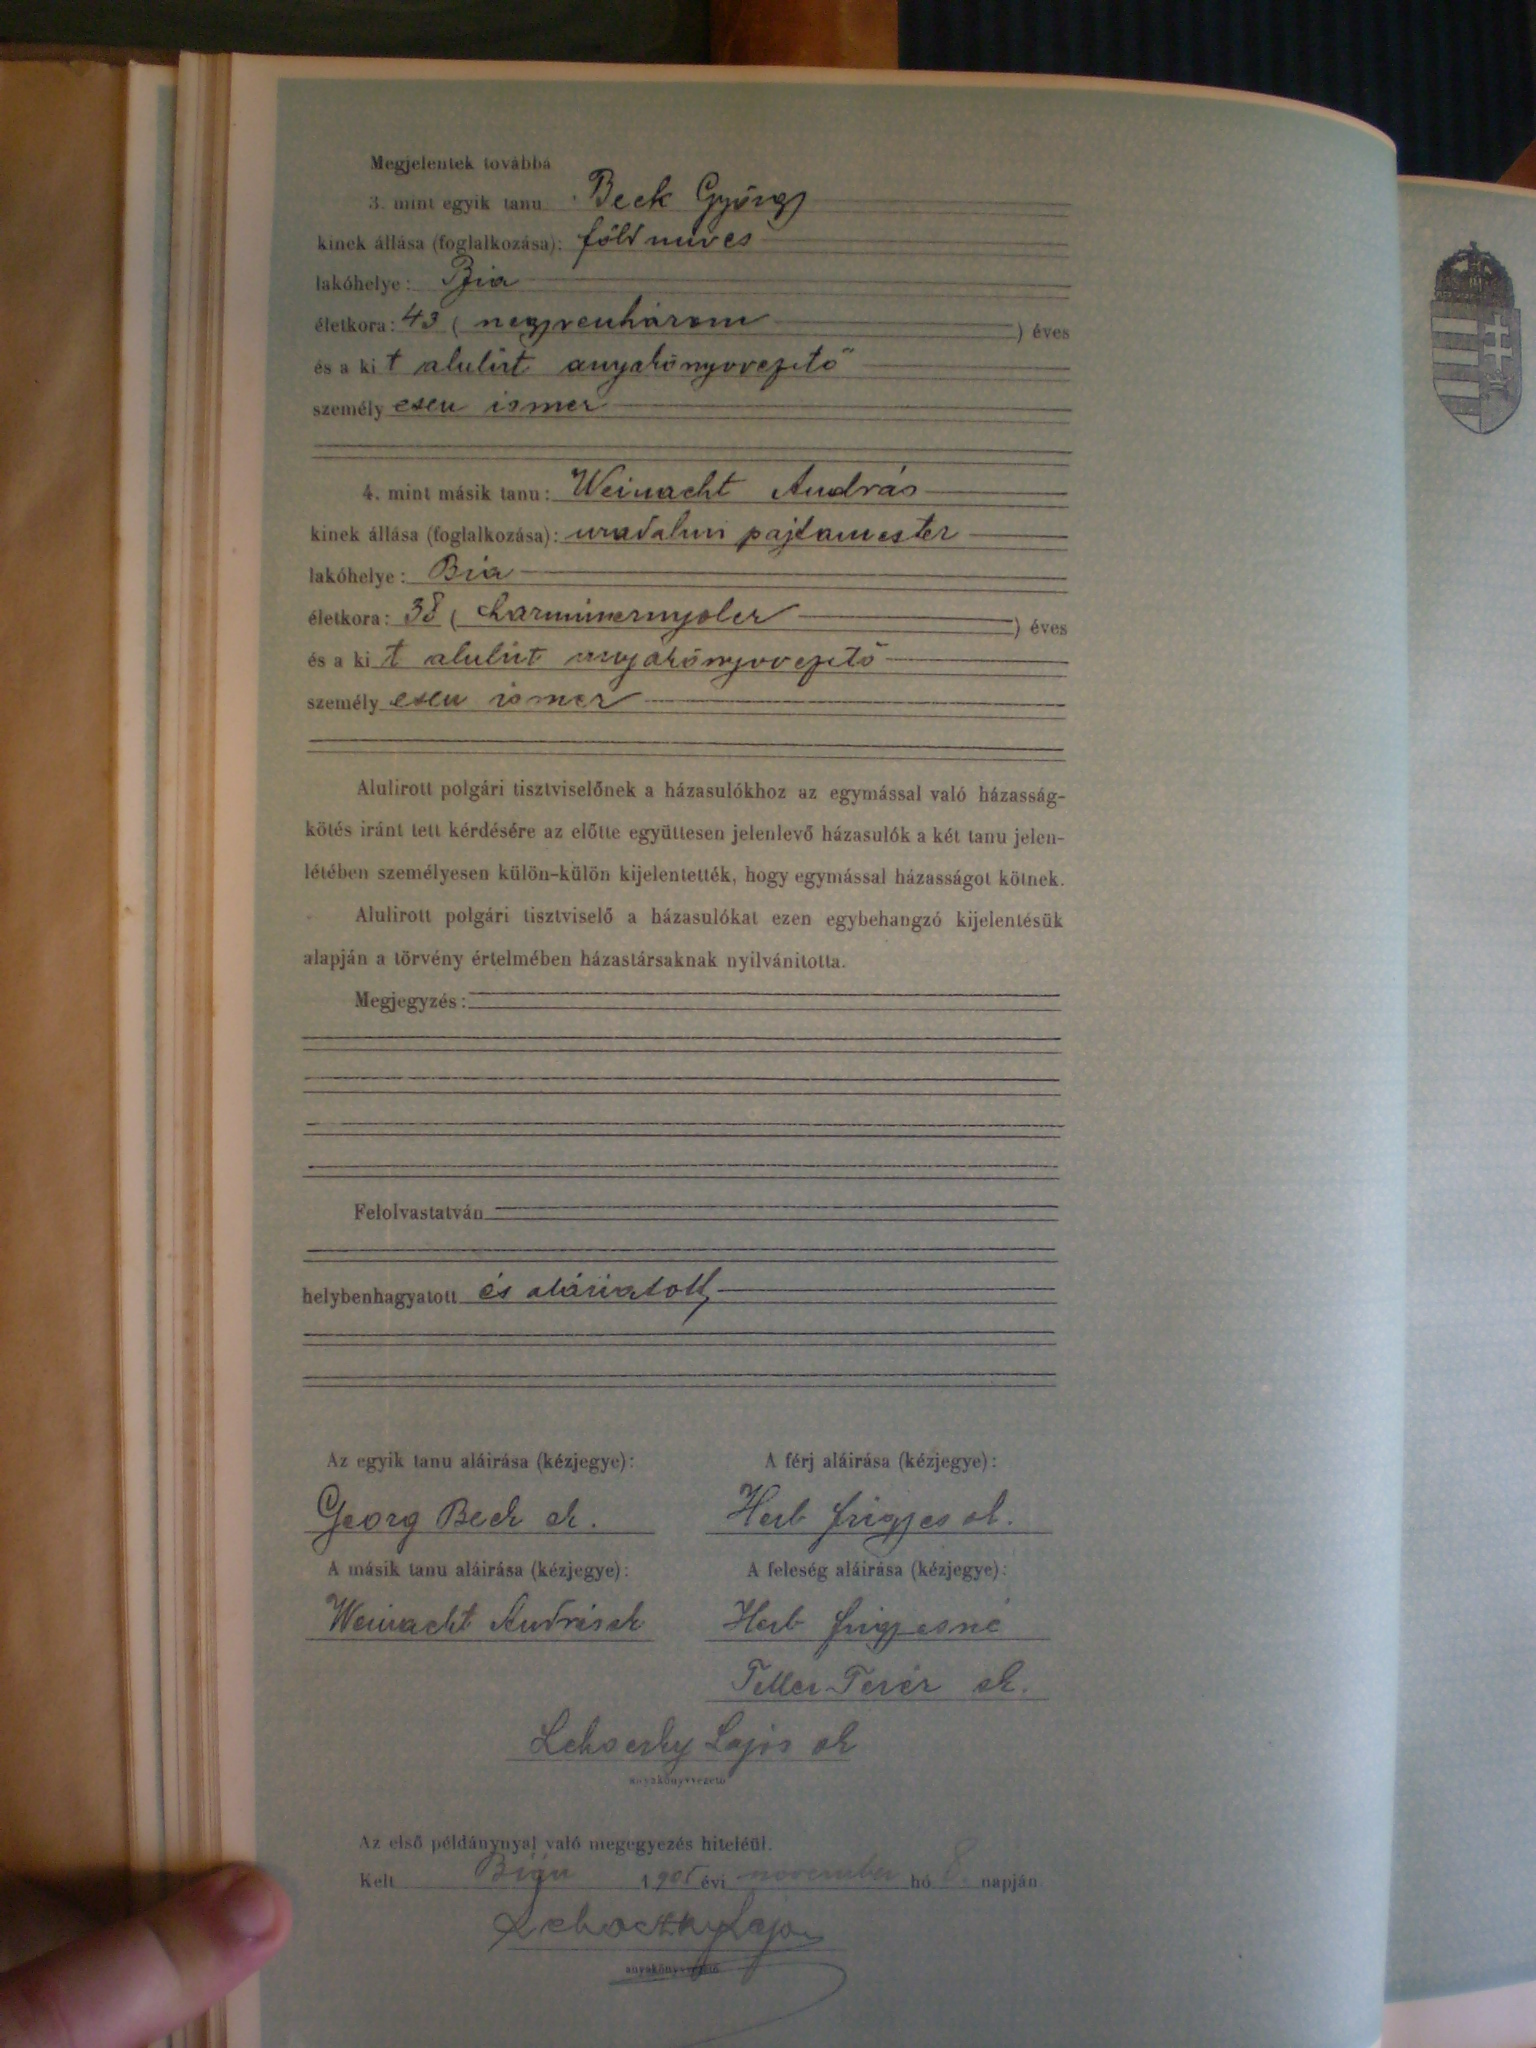 Megjelentek továbbá
3. mint egyik tanu Beck György
kinek állása (foglalkozása): földműves
lakóhelye: Bia
életkora: 43 (negyvenhárom) éves
és a ki t alulirt anyakönyvvezető
személy esen ismer
4. mint másik tanu: Weinacht András
kinek állása (foglalkozása): uradalmi pajtamester
lakóhelye: Bia
életkora: 38 (harmincnyolcz) éves
és a ki t alulirt anyakönyvvezető
személy esen ismer
Alulirott polgári tisztviselőnek a házasulókhoz az egymással való házasság-
kötés iránt tett kérdésére az előtte együttesen jelenlevő házasulók a két tanu jelen-
létében személyesen külön-külön kijelentették, hogy egymással házasságot kötnek.
Alulirott polgári tisztviselő a házasulókat ezen egybehangzó kijelentésük
alapján a törvény értelmében házastársaknak nyilvánitotta.
Megjegyzés:
Felolvastatván
helybenhagyatott és aláiratott,
Az egyik tanu aláirása (kézjegye): A férj aláirása (kézjegye):
Georg Beck sk. Herb Frigyes sk.
A másik tanu aláirása (kézjegye): A feleség aláirása (kézjegye):
Weinacht András sk Herb Frigyesné
Teller Teréz sk.
Lehoczky Lajos sk
anyakönyvvezető
Az első példánynyal való megegyezés hiteléül.
Kelt Bián 1905 évi november hó 8. napján
Lehoczky Lajos
anyakönyvvezető